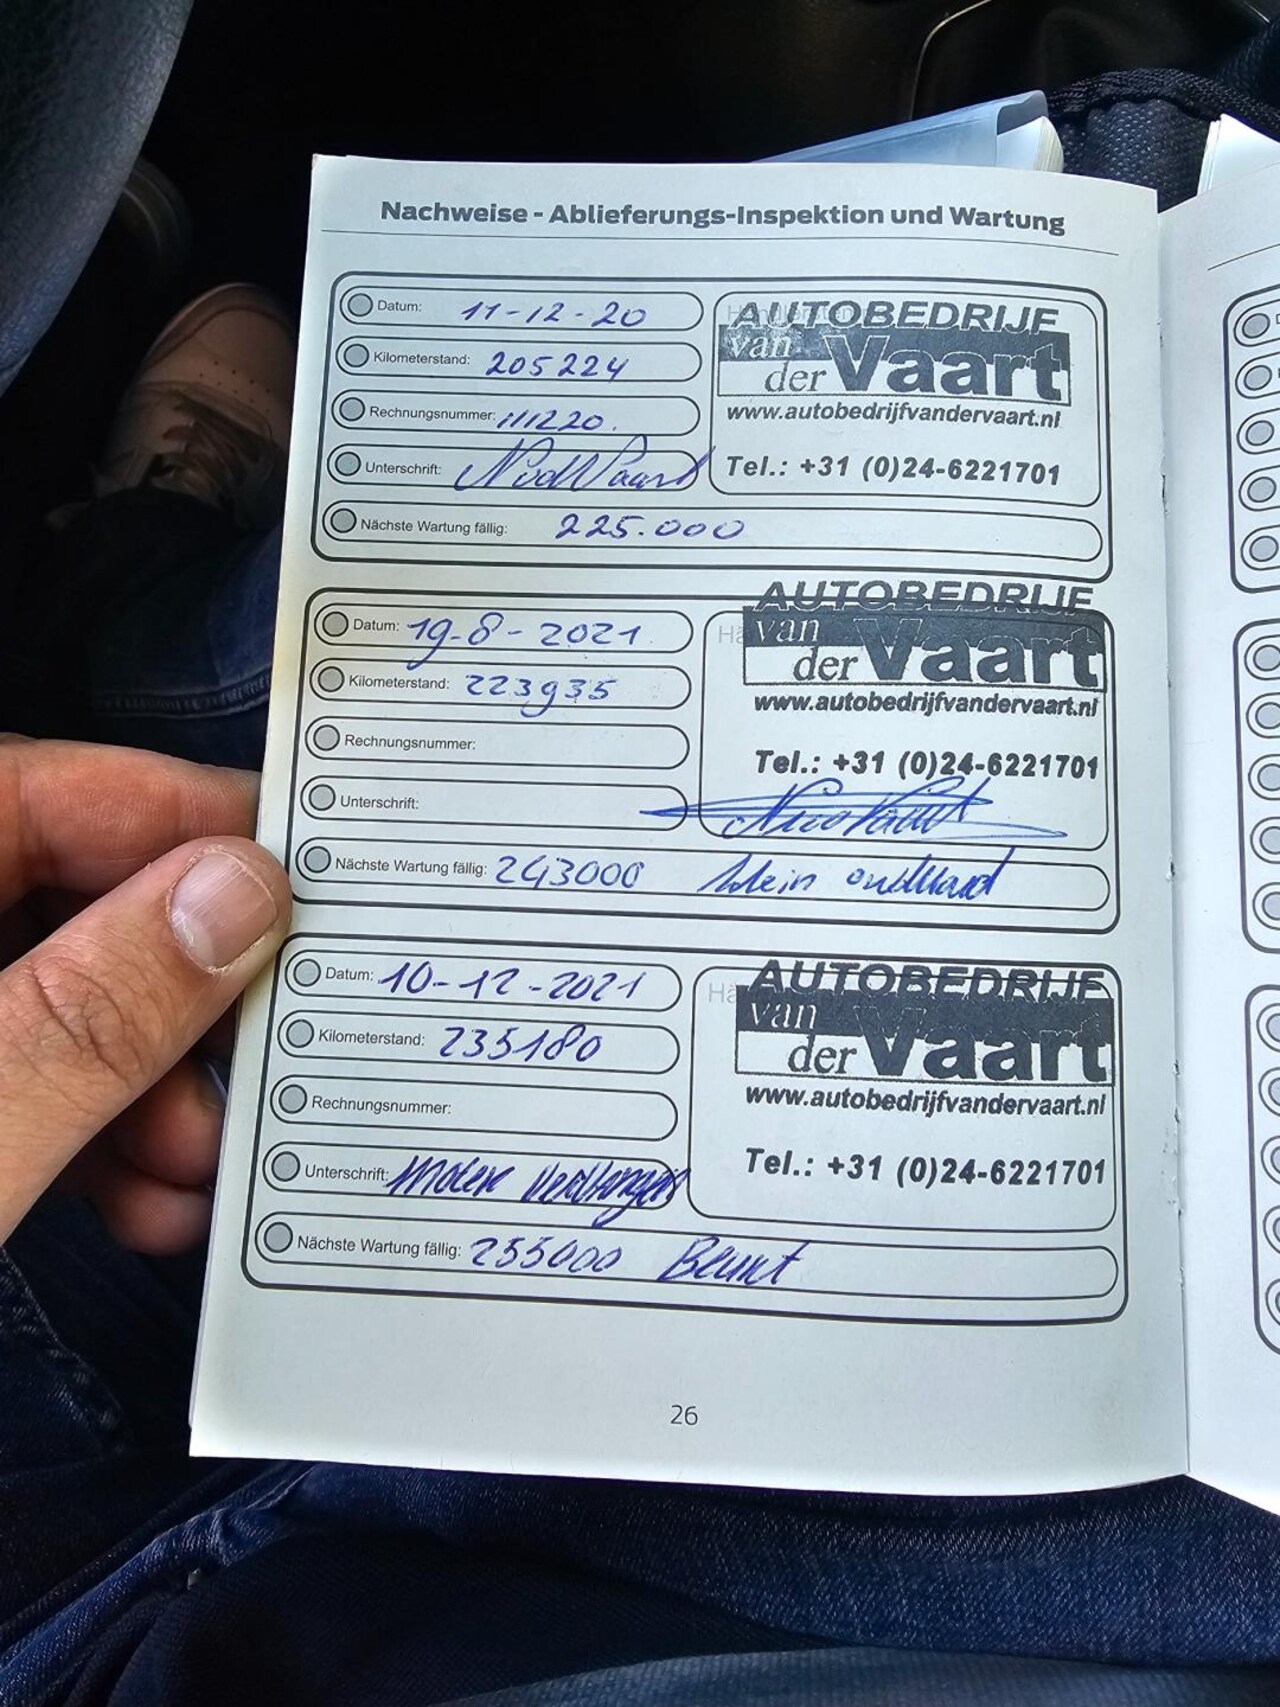 Nachweise - Ablieferungs-Inspektion und Wartung
Datum: 11-12-20
Kilometerstand: 205224
Rechnungsnummer: 111220.
Unterschrift:
Nächste Wartung fällig: 225.000
AUTOBEDRIJF
van
der Vaart
www.autobedrijfvandervaart.nl
Tel.: +31 (0)24-6221701
Datum: 19-8-2021
Kilometerstand: 223935
Rechnungsnummer:
Unterschrift:
Nächste Wartung fällig: 243000
AUTOBEDRIJF
van
der Vaart
www.autobedrijfvandervaart.nl
Tel.: +31 (0)24-6221701
Datum: 10-12-2021
Kilometerstand: 235180
Rechnungsnummer:
Unterschrift:
Nächste Wartung fällig: 255000 Beurt
AUTOBEDRIJF
van
der Vaart
www.autobedrijfvandervaart.nl
Tel.: +31 (0)24-6221701
26